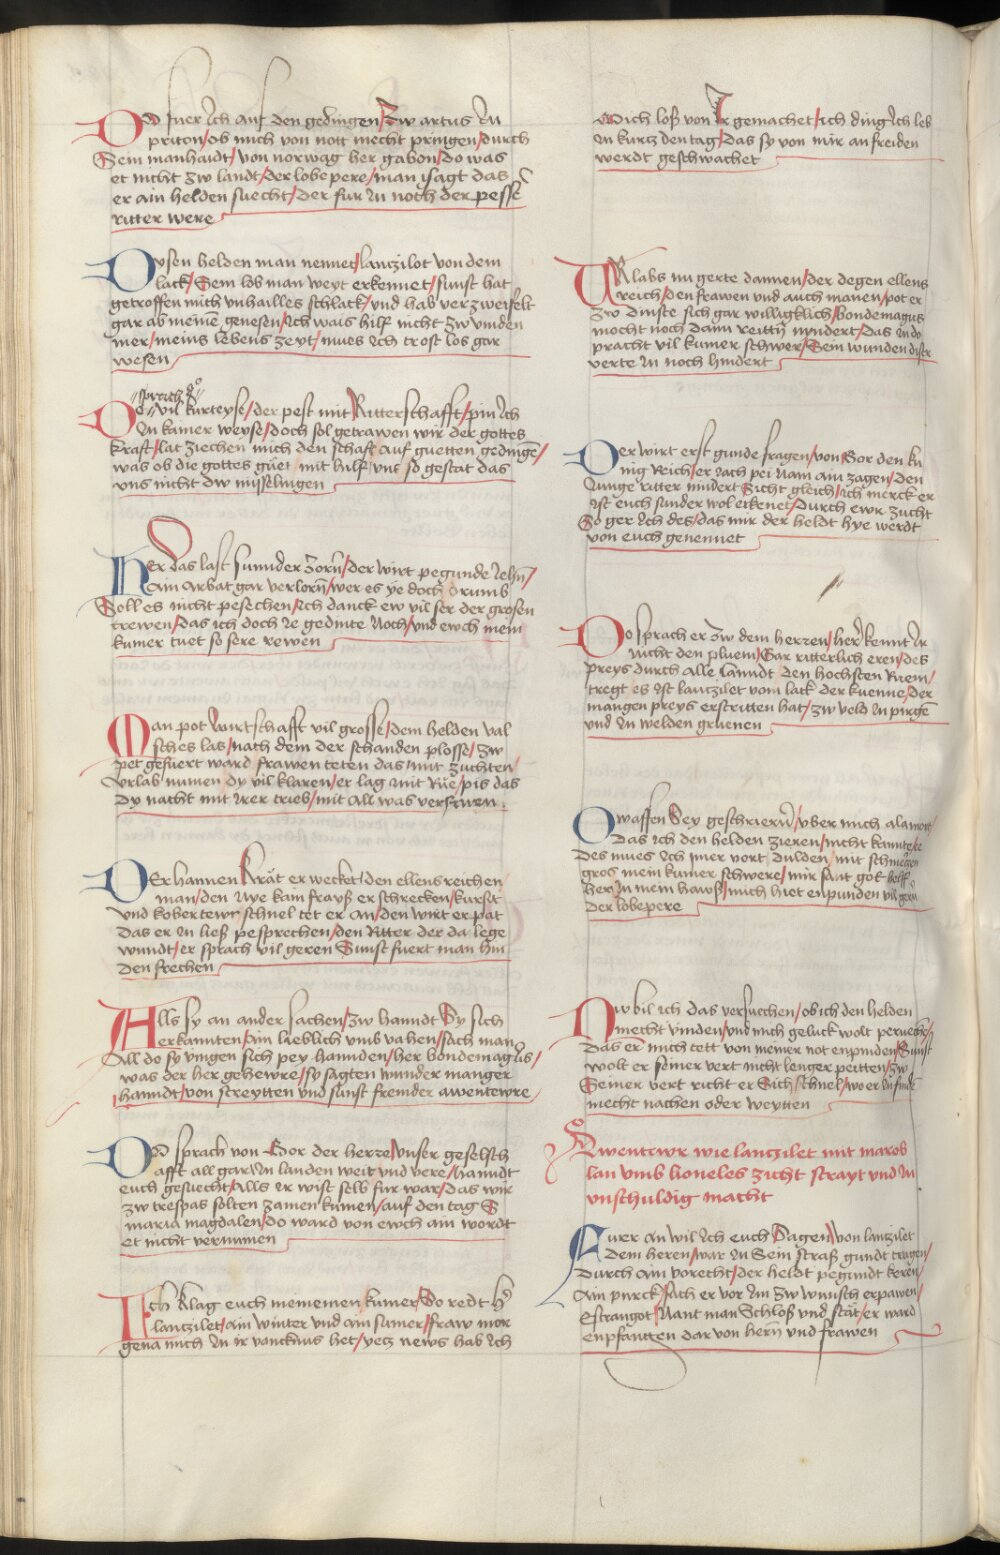 Do fuer ich auf den gedingen/Zw artus in
priton/ob mich von nott mecht pringen/durch
Sein manhaidt/von norwag her gabon/do was
er nicht zw landt/der lobepere/man sagt das
er ain helden suecht/der fur in noch der pesste
ritter were
Dysen helden man nennet/lanczilot von dem
lack/Sein lob man weyt erkennet/sunst hat
getroffen mich unhailles schlack/und hab verzweifelt
gar ab meinē genesen/ich wais hilf nicht zw vinden
mer/meins lebens zeyt/mues ich trost los gar
wesen
sprach
O vil kurteyse/der pest mit Ritterschafft/pin ich
in kainer weyse/doch sol getrawen wir der gottes
kraft/lat ziechen mich den schaft auf guetten gedingē/
was ob die gottes güet/mit hilf uns so gestat das
uns nicht dw mysselingen
Her das last sunnder zorn/der wirt pegunde iehn/
Ain arbat gar verlorn/wer es ye doch drumb
Soll es nicht pesechen/ich danck ew vil ser der grosen
trewen/das ich doch ie gedinte noch/und ewch mein
kumer tuet so sere rewen
Man pot wirtschafft vil grosse/dem helden val
sches las/nach dem der schanden plosse/zw
pet gefuert ward frawen teten das/mit zuchten/
urlab numen dy vil klaren/er lag mit rue/pis das
dy nacht mit irer trieb/mit all was verfaren
Der hannen krät er wecket/den ellensreichen
man/den nye kain frayß er schrecken/kursit
und kobertewr schnel tet er an/den wirt er pat
das er in ließ pesprechen/den Ritter der da lege
wundt/er sprach vil geren Sunst fuert man hin
den frechen
Alls sy an ander sachen/zw hanndt Sy sich
erkannten/ain lieblich umb vahen/sach man
All do sy vingen sich pey hannden/her bondemagus/
was der her gehewre/sy sagten wunder manger
hanndt/von streytten und sunst fremder awentewre
Do sprach von Bor der herre/unser geselsch
afft all gar/in landen weit und vere/hanndt
euch gesuecht/Alls er wist selb fur war/das wir
zw trespas solten zamen kumen/auf den tag S
maria magdalen/do ward von ewch ain wordt
et nicht vernumen
Ich klag euch meinenen kumer/So redt h̄
lanczilet/ain winter und ain sumer/fraw mor
gena mich in ir vancknus het/yecz news hab ich
Mich loß von Ir gemachet/ich ding ich leb
in kurcz den tag/das sy von mir an freiden
werdt geschwachet
Urlabs nu gerte dannen/der degen ellens
reich/den frawen und auch manen/pot er
zw dinste sich gar willigklich/Bondemagus
mocht noch dann reittn nyndert/das in do
pracht vil kumer schwer/Sein wunden diser
verte in noch hindert
Der wirt erst gunde fragen/von Bor den ku
nig Reich/er iach pei nam ain zagen/den
Junge ritter nindert Sicht gleich/ich merck er
ist euch sunder wol erkenet/durch ewr zucht
So ger ich des/das mir der heldt hye werdt
von euch genennet
Do sprach er zw dem herren/her kennt ir
nicht den pluem/Gar ritterlich eren/des
preys durch alle lanndt den hochsten ruem/
tregt es ist lanczilet vom lack der kuenne/der
mangen preys erstritten hat/zw veld in pirgē
und in welden gruenen
O waffen Sey geschriern/uber mich alamort/
Das ich den helden zieren/nicht kannte/e
Des mues ich imer vort dulden mit schmerzen
gros mein kumer schwere/mir sant got helff
her in mein haws/mich hiet enpunden vil gern
der lobepere
Nw bil ich das versuechen/ob ich den helden
mecht vinden/und mich geluck wolt peruechē/
das er mich tett von meiner not enpinden/Sunst
wolt er seiner vert nicht lenger peitten/zw
Seiner vert richt er Sich schnel/wo er in finde
mecht nachen oder weytten
Awentewr wie lanczilet mit marob
lan umb lioneles zicht strayt und in
unschuldig macht
Furer an wil ich euch Sagen/von lanczilet
dem heren/war in Sein straß gundt tragen/
Durch ain vorecht/der heldt pegundt keren/
Ain purck/sach er vor im zw wunsch erpawen/
Estrangot/Nant man Schloß und stat/er ward
enpfantgen dar von hern und frawen